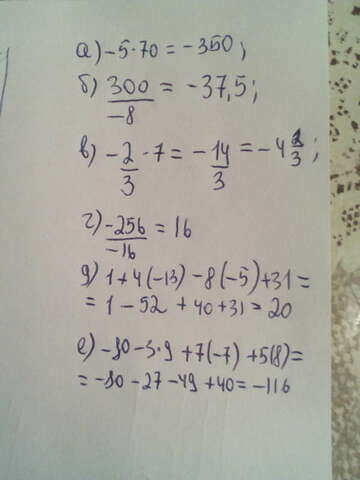 а) -5·70 = -350;
б) 300/-8 = -37,5;
в) -2/3 · 7 = -14/3 = -4 2/3;
г) -256/-16 = 16
д) 1+4(-13) -8(-5)+31=
= 1 - 52 + 40+31 = 20
е) -80-3·9 +7(-7) +5(8)=
= -80 -27 -49 +40 = -116